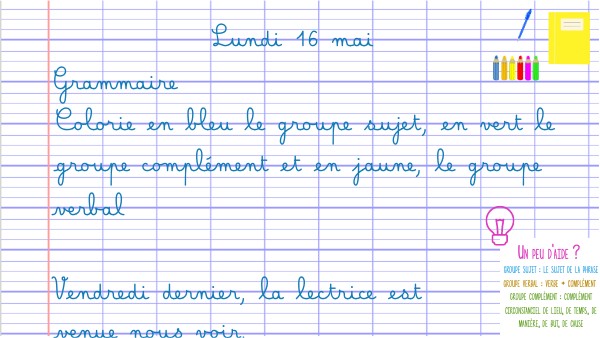 Lundi 16 mai
Grammaire
Colorie en bleu le groupe sujet, en vert le
groupe complément et en jaune, le groupe
verbal
Vendredi dernier, la lectrice est
venue nous voir.
Un peu d'aide ?
Groupe sujet : le sujet de la phrase
Groupe verbal : verbe + complément
Groupe complément : complément
circonstanciel de lieu, de temps, de
manière, de but, de cause